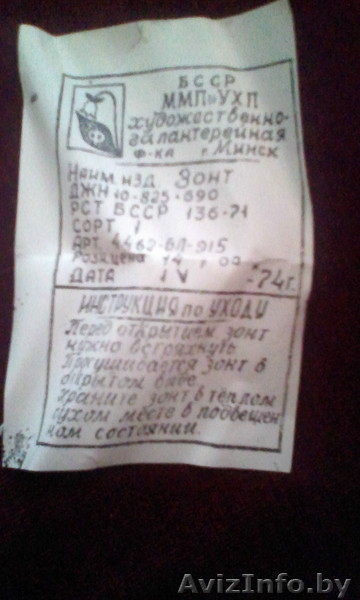 БССР
ММП и УХП
художественно-
галантерейная
ф-ка г. Минск
Наим. изд. Зонт
ДЖН 10-825-690
РСТ БССР 136-71
СОРТ 1
Арт. 4462-ВЛ-915
Розн. цена 14, 00
ДАТА IV -74г.
ИНСТРУКЦИЯ по УХОДУ
Перед открытием зонт
нужно встряхнуть
Просушивается зонт в
открытом виде
храните зонт в тёплом
сухом месте в подвешен-
ном состоянии.
AvizInfo.by